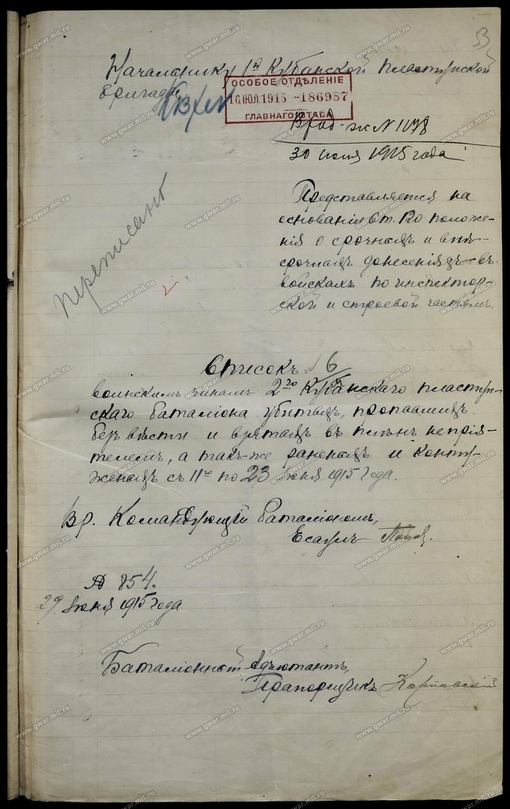 Начальнику 1й Кубанской пластунской
бригады
ОСОБОЕ ОТДѢЛЕНІЕ
16 ІЮЛ 1915 -186987
ГЛАВНАГО ШТАБА
№ 1178
30 июня 1915 года
Представляется на
основаніи ст. положе-
нія о срочныхъ и внѣ-
срочныхъ донесеніяхъ въ
войскахъ по инспектор-
ской и строевой частямъ.
Переписано
2
Списокъ № 6
воинскимъ чинамъ 2го Кубанскаго пластун-
скаго баталіона убитыхъ, пропавшихъ
безъ вѣсти и взятыхъ въ плѣнъ непрія-
телемъ, а такъ-же раненыхъ и конту-
женыхъ съ 11го по 23 Іюня 1915 года.
Вр. Командующій баталіономъ,
Есаулъ Поповъ.
№ 854.
29 Іюня 1915 года
Баталіонный Адъютантъ,
Прапорщикъ